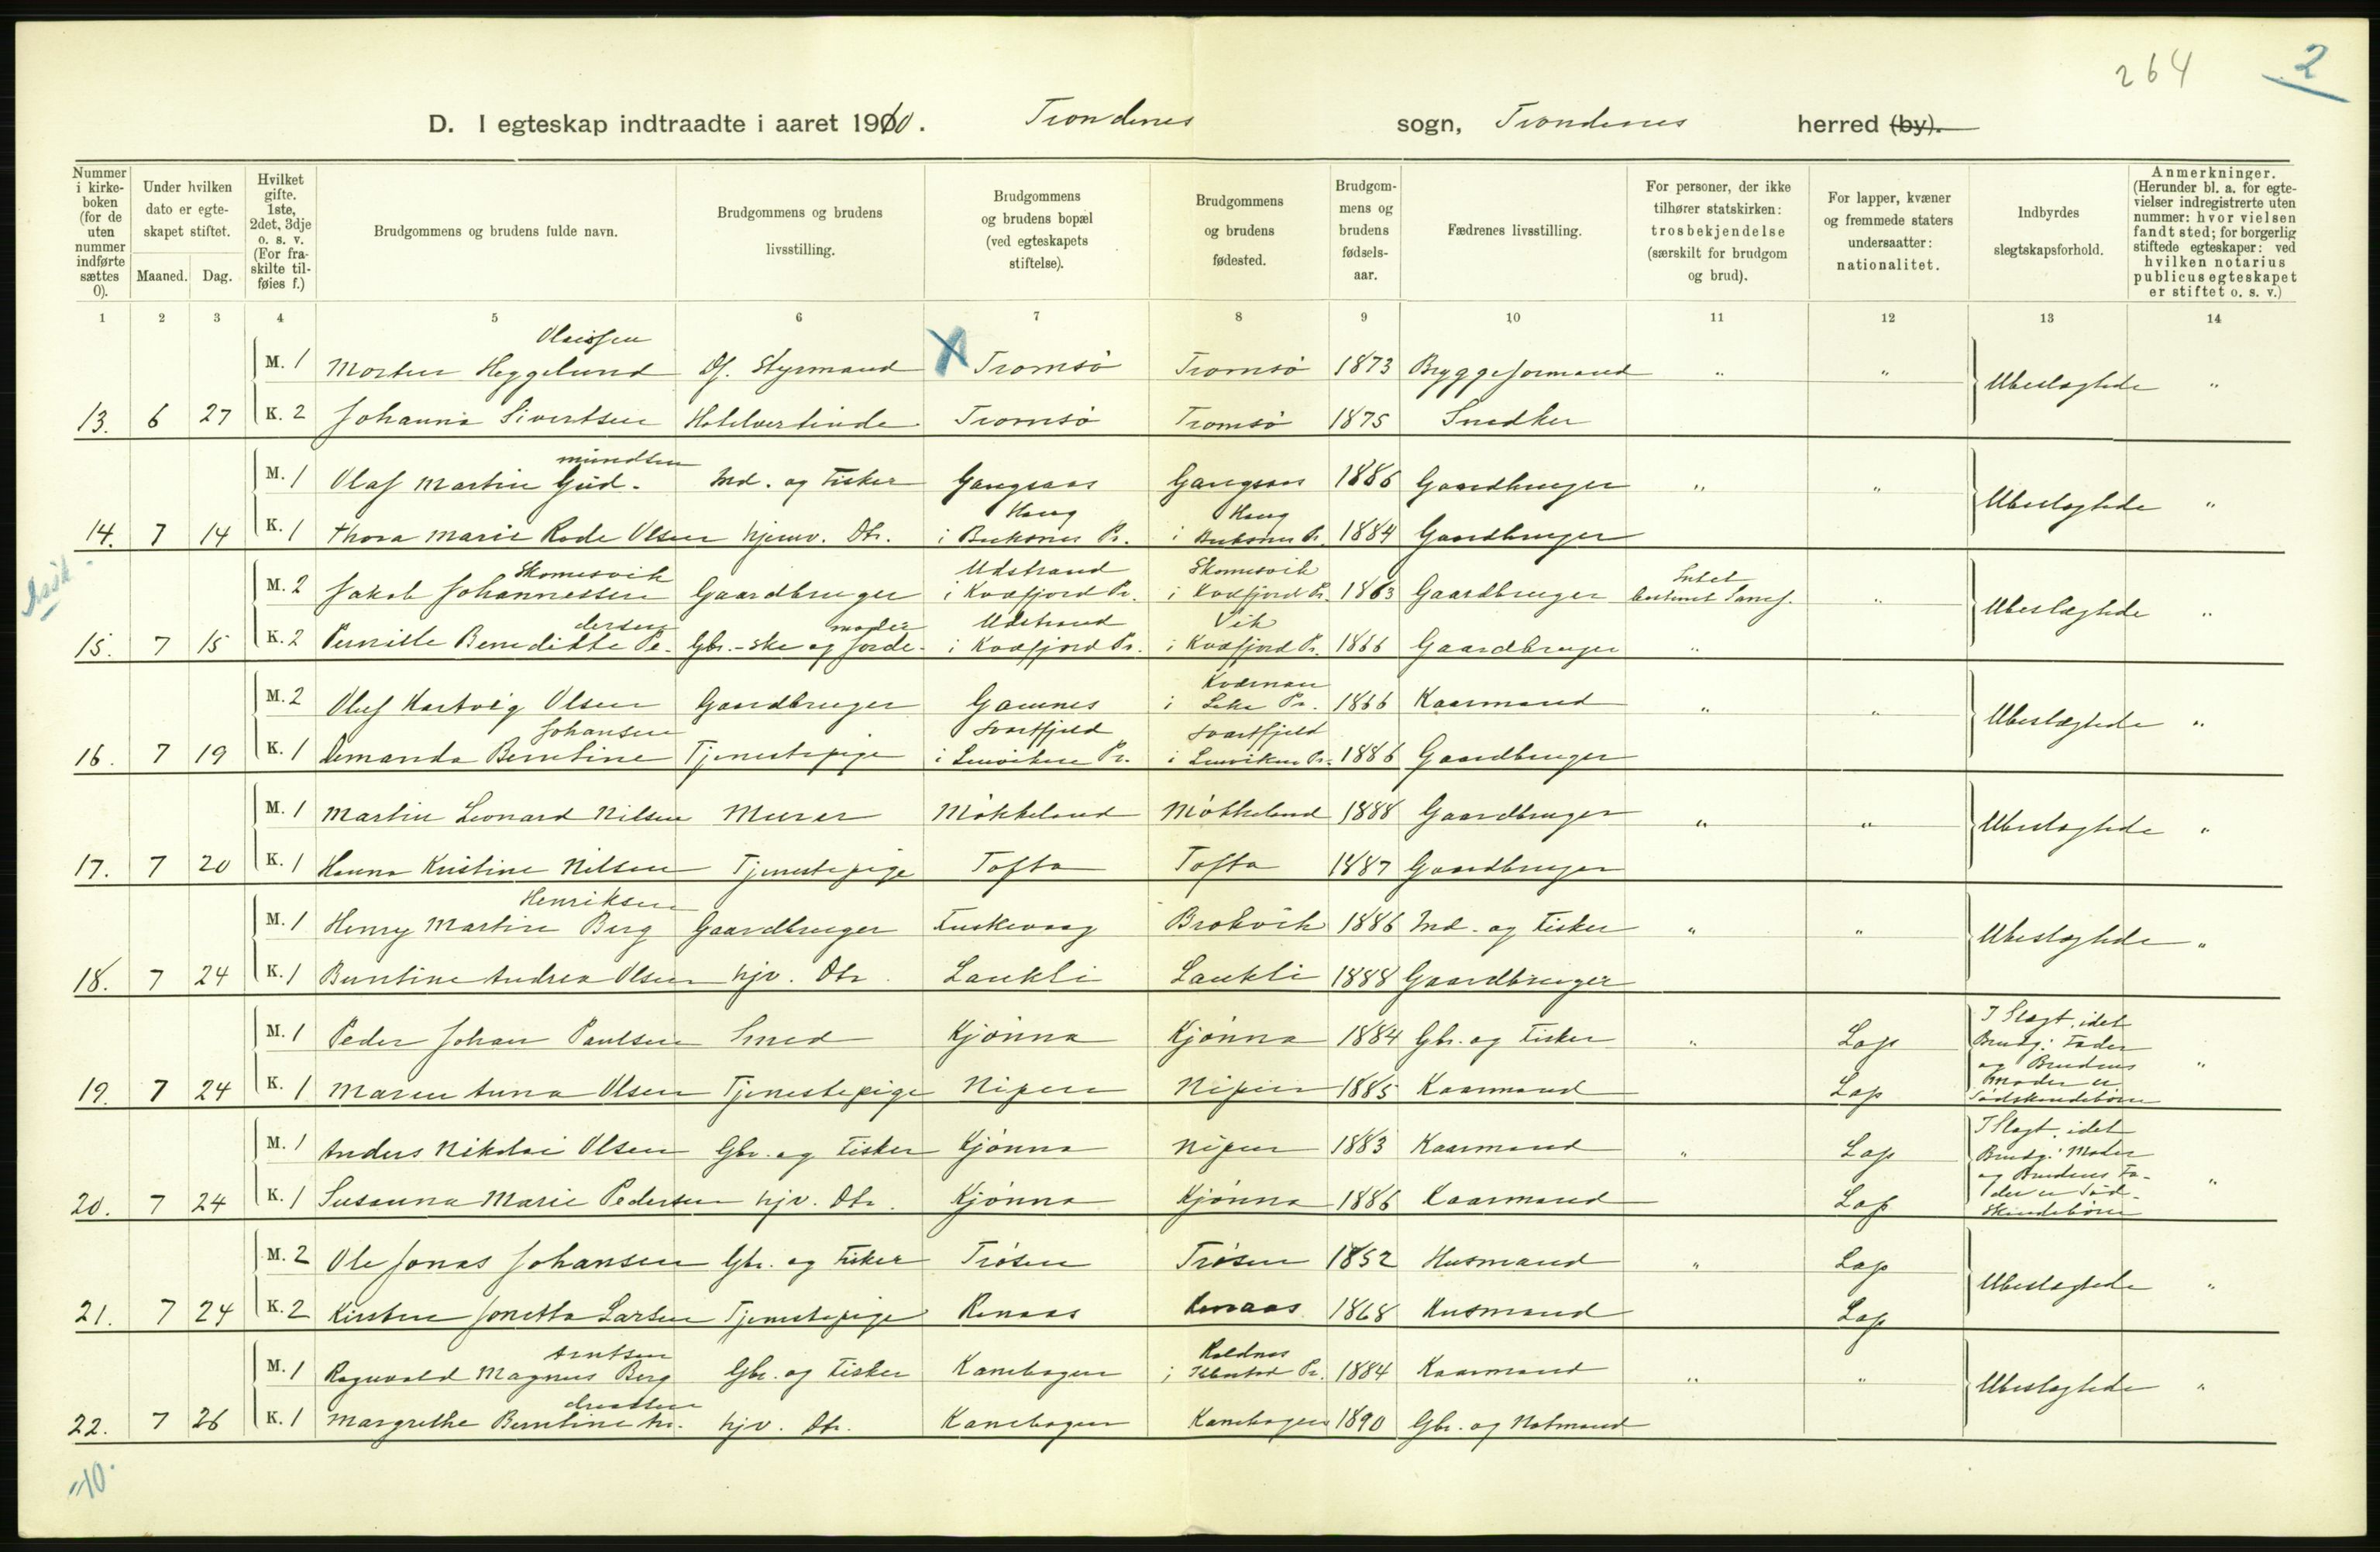 264 2
D. I egteskap indtraadte i aaret 1910. Trondenes sogn, Trondenes herred (by).
Nummer i kirke-boken (for de uten nummer indførte sættes 0).
Under hvilken dato er egte-skapet stiftet.
Maaned. Dag.
Hvilket gifte. 1ste, 2det, 3dje o. s. v. (For fra-skilte til-føies f.)
Brudgommens og brudens fulde navn.
Brudgommens og brudens livsstilling.
Brudgommens og brudens bopæl (ved egteskapets stiftelse).
Brudgommens og brudens fødested.
Brudgom-mens og brudens fødsels-aar.
Fædrenes livsstilling.
For personer, der ikke tilhører statskirken: trosbekjendelse (særskilt for brudgom og brud).
For lapper, kvæner og fremmede staters undersaatter: nationalitet.
Indbyrdes slegtskapsforhold.
Anmerkninger. (Herunder bl. a. for egte-vielser indregistrerte uten nummer: hvor vielsen fandt sted; for borgerlig stiftede egteskaper: ved hvilken notarius publicus egteskapet er stiftet o. s. v.)
1 2 3 4 5 6 7 8 9 10 11 12 13 14
Olaissen
M. 1 Morten Heggelund Df. Styrmand X Tromsö Tromsö 1873 Bryggeformand " " Ubeslægtede "
13. 6 27 K. 2 Johanna Sivertsen Hotelvertinde Tromsö Tromsö 1875 Snedker
mundsen
M. 1 Olaf Martin Gud- Ind. og Fisker Gangsaas Gangsaas 1886 Gaardbruger " " Ubeslægtede "
Haug Haug
14. 7 14 K. 1 Thora Marie Rode Olsen hjemv. Dtr. i Buksnes Pr. i Buksnes Pr. 1884 Gaardbruger
Skomesvik Udstrand Skomesvik Intet
M. 2 Jakob Johannessen Gaardbruger i Kvæfjord Pr. i Kvæfjord Pr. 1863 Gaardbruger bestemt Samf. " Ubeslægtede "
dersen moder Udstrand Vik
15. 7 15 K. 2 Pernille Benedikte Pe- Gbr.-ske og Jorde- i Kvæfjord Pr. i Kvæfjord Pr. 1866 Gaardbruger "
Kværnan
M. 2 Oluf Hartvig Olsen Gaardbruger Gamnes i Leka Pr. 1866 Kaarmand " " Ubeslægtede "
Johansen Svartfjeld Svartfjeld
16. 7 19 K. 1 Amanda Berntine Tjenestepige i Lenviken Pr. i Lenviken Pr. 1886 Gaardbruger
M. 1 Martin Leonard Nilsen Murer Mökkeland Mökkeland 1888 Gaardbruger " " Ubeslægtede "
17. 7 20 K. 1 Hanna Kristine Nilsen Tjenestepige Tofta Tofta 1887 Gaardbruger
Henriksen
M. 1 Henry Martin Berg Gaardbruger Fuskevaag Brokvik 1886 Ind. og Fisker " " Ubeslægtede "
18. 7 24 K. 1 Berntine Andrea Olsen hjv. Dtr. Laukli Laukli 1888 Gaardbruger
M. 1 Peder Johan Paulsen Smed Kjönna Kjönna 1884 Gbr. og Fisker " Lap I Slægt, idet Brudg: Fader og Brudens Moder er Södskendebörn "
19. 7 24 K. 1 Maren Anna Olsen Tjenestepige Nipen Nipen 1885 Kaarmand Lap
M. 1 Anders Nikolai Olsen Gbr. og Fisker Kjönna Nipen 1883 Kaarmand " Lap I Slægt, idet Brudg: Moder og Brudens Fa-der er Söd-skendebörn "
20. 7 24 K. 1 Susanna Marie Pedersen hjv. Dtr. Kjönna Kjönna 1886 Kaarmand Lap
M. 2 Ole Jonas Johansen Gbr. og Fisker Trösen Trösen 1852 Husmand " Lap Ubeslægtede "
21. 7 24 K. 2 Kirsten Jonetta Larsen Tjenestepige Renaas Renaas 1868 Husmand Lap
Arntsen Roldnes
M. 1 Ragnvald Magnus Berg Gbr. og Fisker Kanebogen i Ibbestad Pr. 1884 Kaarmand " " Ubeslægtede "
dreassen
22. 7 26 K. 1 Margrethe Berntine An- hjv. Dtr. Kanebogen Kanebogen 1890 Gbr. og Notmand
"10.